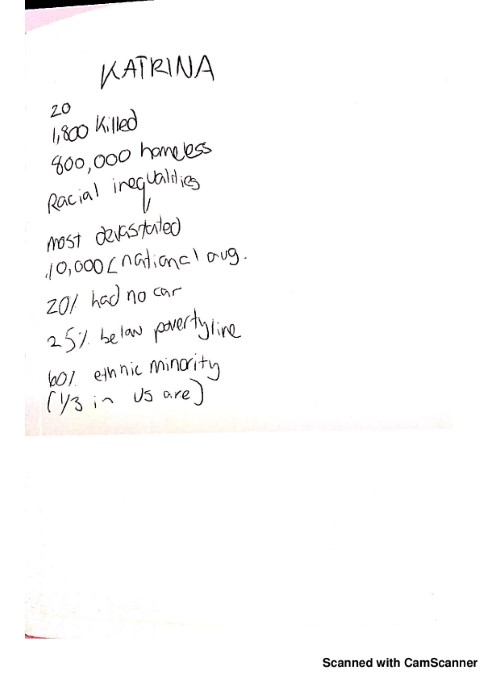 KATRINA
20
1,800 killed
800,000 homeless
Racial inequalities
most devastated
10,000 < national avg.
20% had no car
25% below poverty line
60% ethnic minority
(1/3 in US are)
Scanned with CamScanner